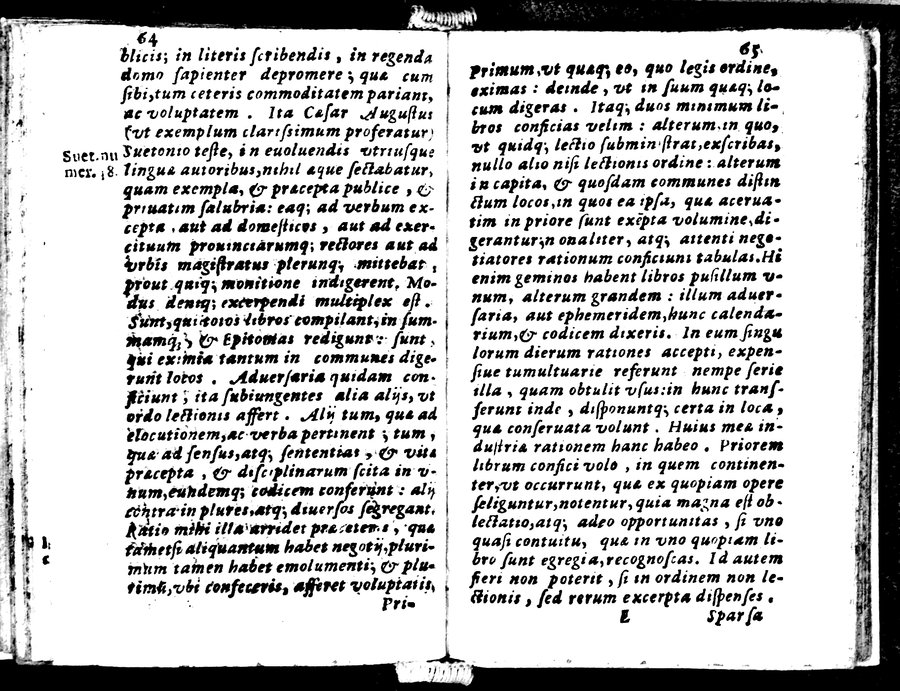 64
blicis; in literis ſcribendis, in regenda
domo ſapienter depromere; quæ cum
ſibi, tum ceteris commoditatem pariant,
ac voluptatem. Ita Cæſar Auguſtus
(vt exemplum clariſſimum proferatur)
Suetonio teſte, in euoluendis vtriuſque
Suet. nu
mer. 18.
linguæ autoribus, nihil æque ſectabatur,
quam exempla, & præcepta publice, &
priuatim ſalubria: eaq; ad verbum ex-
cepta, aut ad domeſticos, aut ad exer-
cituum prouinciarumq; rectores aut ad
vrbis magiſtratus plerunq; mittebat,
prout quiq; monitione indigerent. Mo-
dus deniq; excerpendi multiplex eſt.
Sunt, qui totos libros compilant, in ſum-
mamq;, & Epitomas redigunt: ſunt,
qui eximia tantum in communes dige-
runt locos. Aduerſaria quidam con-
ficiunt; ita ſubiungentes alia alijs, vt
ordo lectionis affert. Alij tum, quæ ad
elocutionem, ac verba pertinent; tum,
quæ ad ſenſus, atq; ſententias, & vitæ
præcepta, & diſciplinarum ſcita in v-
num, eundemq; codicem conferunt: alij
contra in plures, atq; diuerſos ſegregant.
Ratio mihi illa arridet præ ceteris, quæ
tametſi aliquantum habet negotij, pluri-
mum tamen habet emolumenti; & plu-
rimũ, vbi confeceris, afferet voluptatis.
Pri-
65
Primum, vt quæq; eo, quo legis ordine,
eximas: deinde, vt in ſuum quæq; lo-
cum digeras. Itaq; duos minimum li-
bros conficias velim: alterum, in quo,
vt quidq; lectio ſubminiſtrat, exſcribas,
nullo alio niſi lectionis ordine: alterum
in capita, & quoſdam communes diſtin
ctum locos, in quos ea ipſa, quæ acerua-
tim in priore ſunt excẽpta volumine, di-
gerantur; n onaliter, atq; attenti nego-
tiatores rationum conficiunt tabulas. Hi
enim geminos habent libros puſillum v-
num, alterum grandem: illum aduer-
ſaria, aut ephemeridem, hunc calenda-
rium, & codicem dixeris. In eum ſingu
lorum dierum rationes accepti, expen-
ſiue tumultuarie referunt nempe ſerie
illa, quam obtulit vſus: in hunc tranſ-
ferunt inde, diſponuntq; certa in loca,
quæ conſeruata volunt. Huius meæ in-
duſtriæ rationem hanc habeo. Priorem
librum confici volo, in quem continen-
ter, vt occurrunt, quæ ex quopiam opere
ſeliguntur, notentur, quia magna eſt ob-
lectatio, atq; adeo opportunitas, ſi vno
quaſi contuitu, quæ in vno quopiam li-
bro ſunt egregia, recognoſcas. Id autem
fieri non poterit, ſi in ordinem non le-
ctionis, ſed rerum excerpta diſpenſes.
E Sparſa